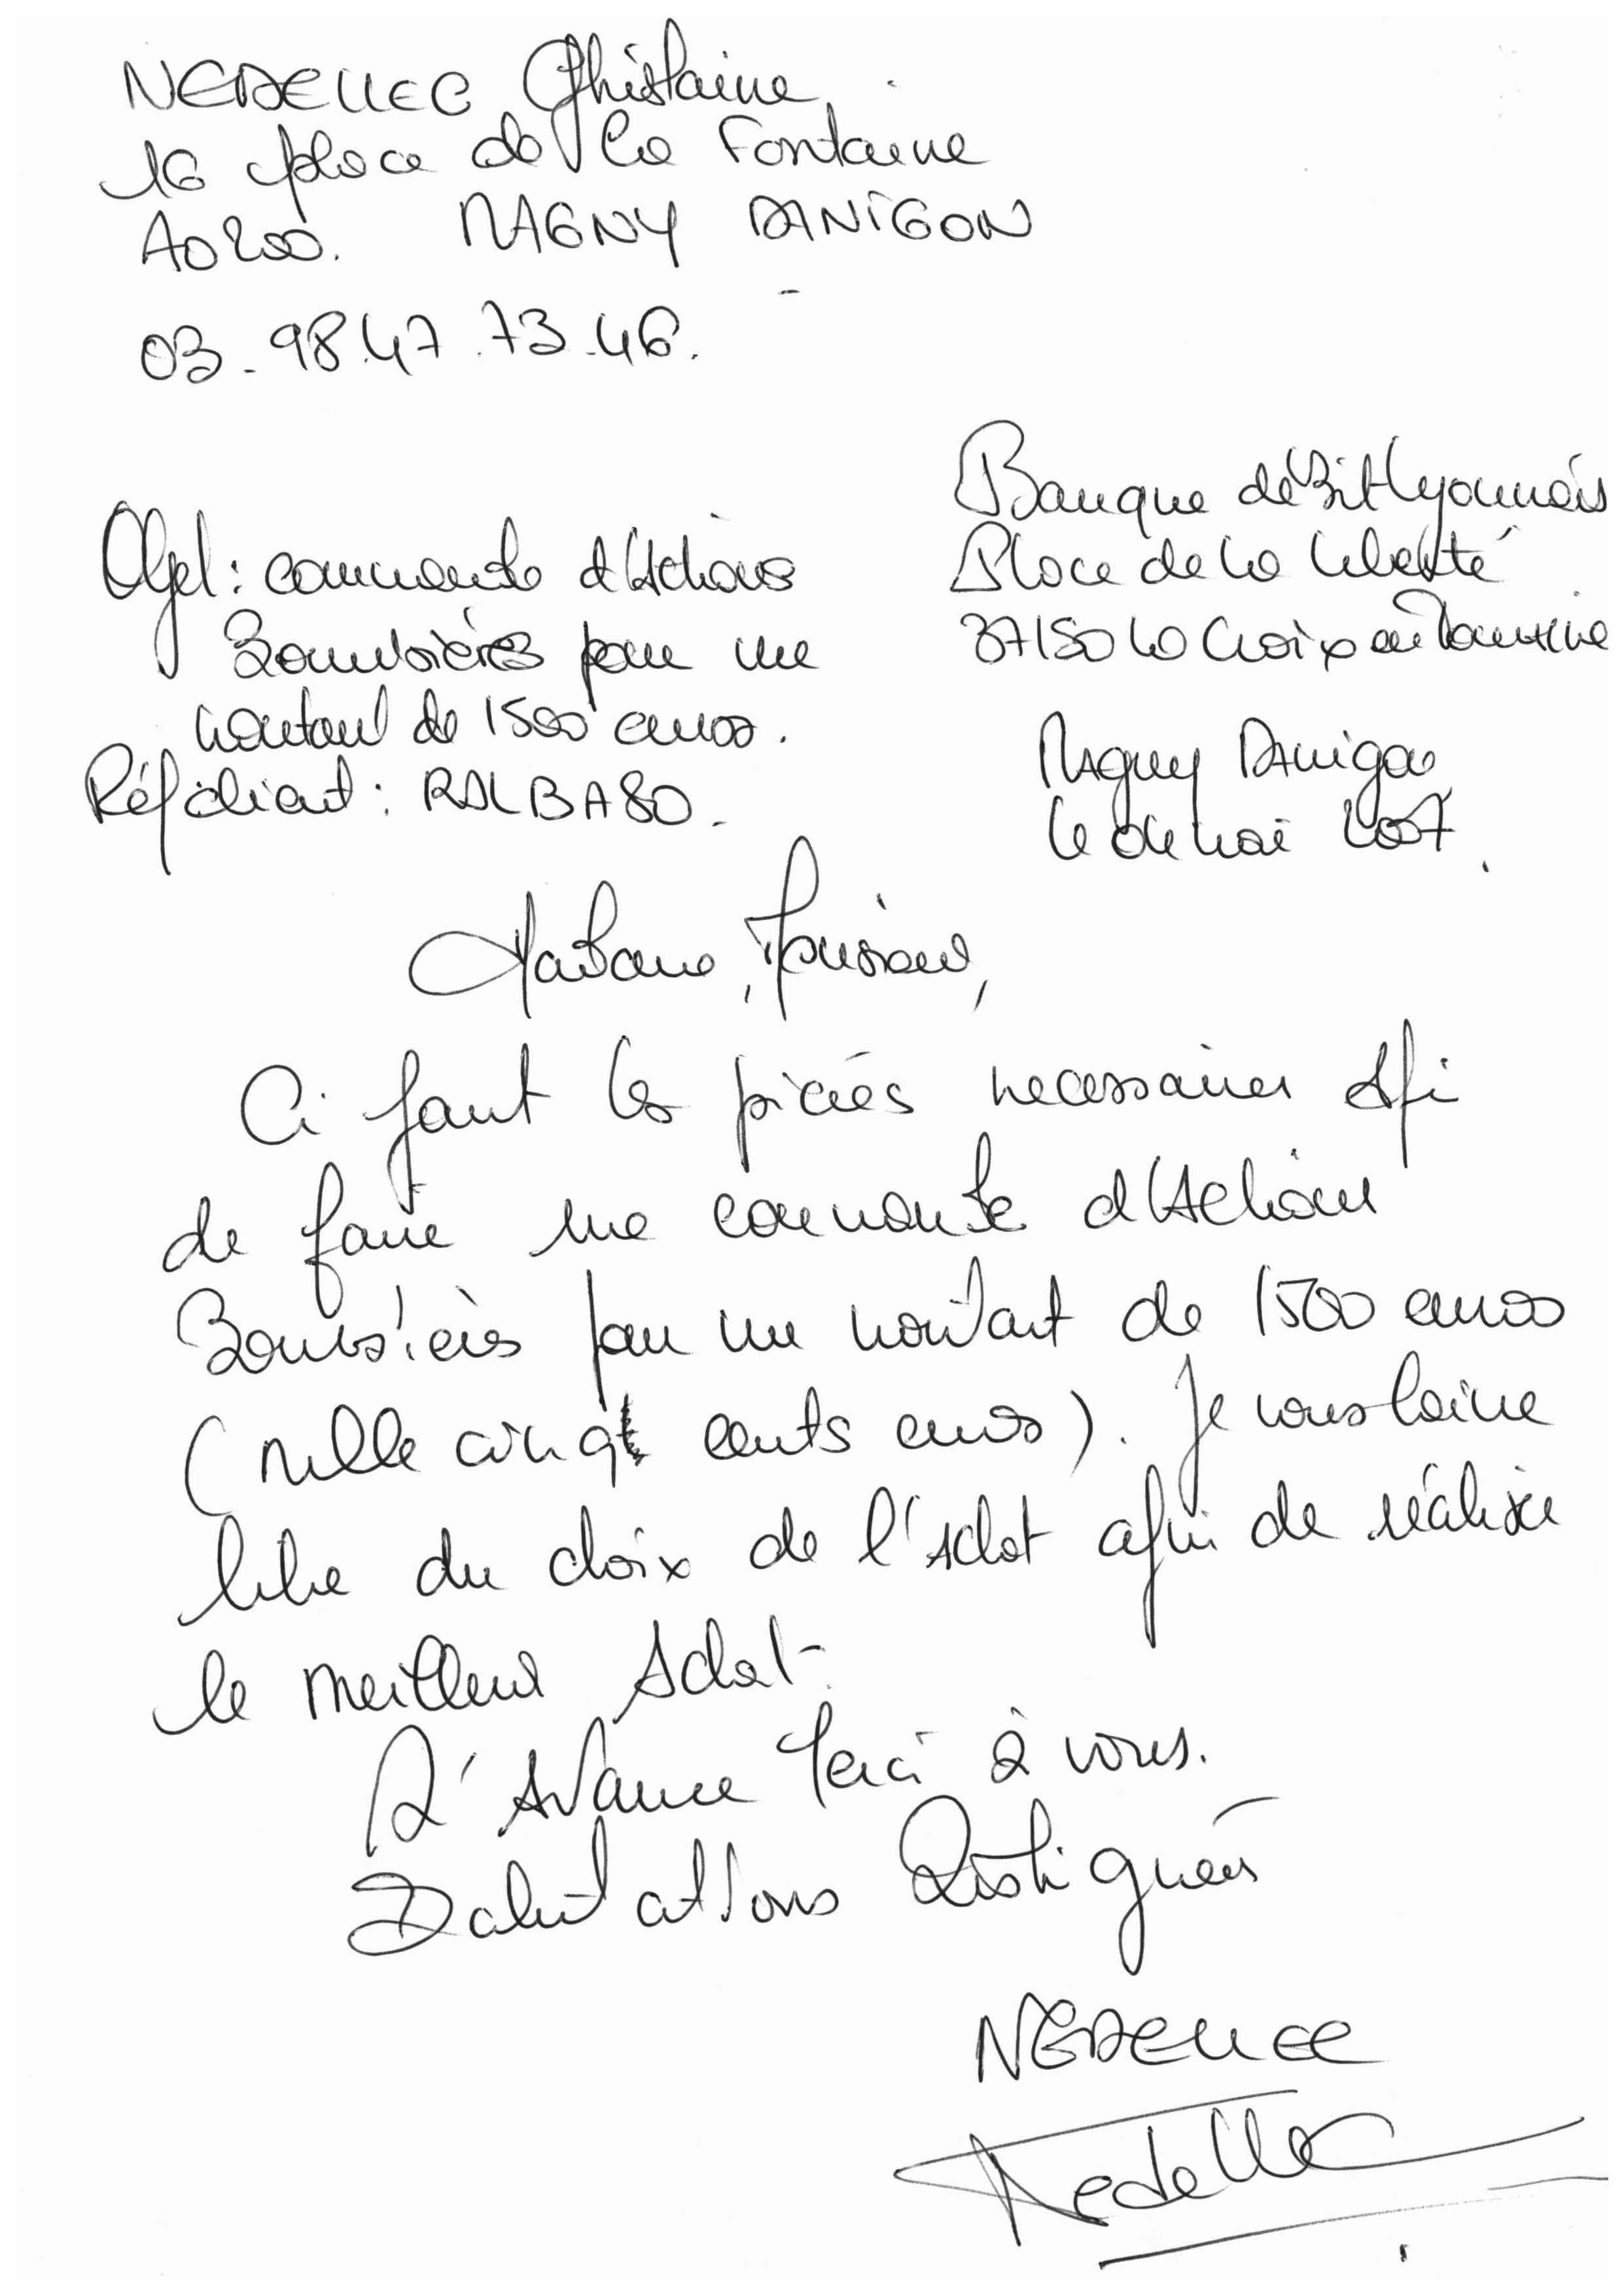 NEDELLEC Ghislaine
16 place de la Fontaine
70200. MAGNY DANIGON
03.98.47.73.46.
Banque débit lyonnais
Place de la liberté
37150 La Croix en Touraine
Objet: commande d'Actions
Boursières pour un
montant de 1500 euros.
Réf client: RXLBA80.
Magny Danigon
le 04 mai 2007.
Madame, Monsieur,
Ci joint les pièces necessaires Afi
de faire une commande d'Actions
Boursières pour un montant de 1500 euros
(mille cinq cents euros). Je vous laisse
libre du choix de l'Achat afin de réaliser
le meilleur Achat.
D'Avance Merci à vous.
Salutations Distinguées
NEDELLEC
Nedellec